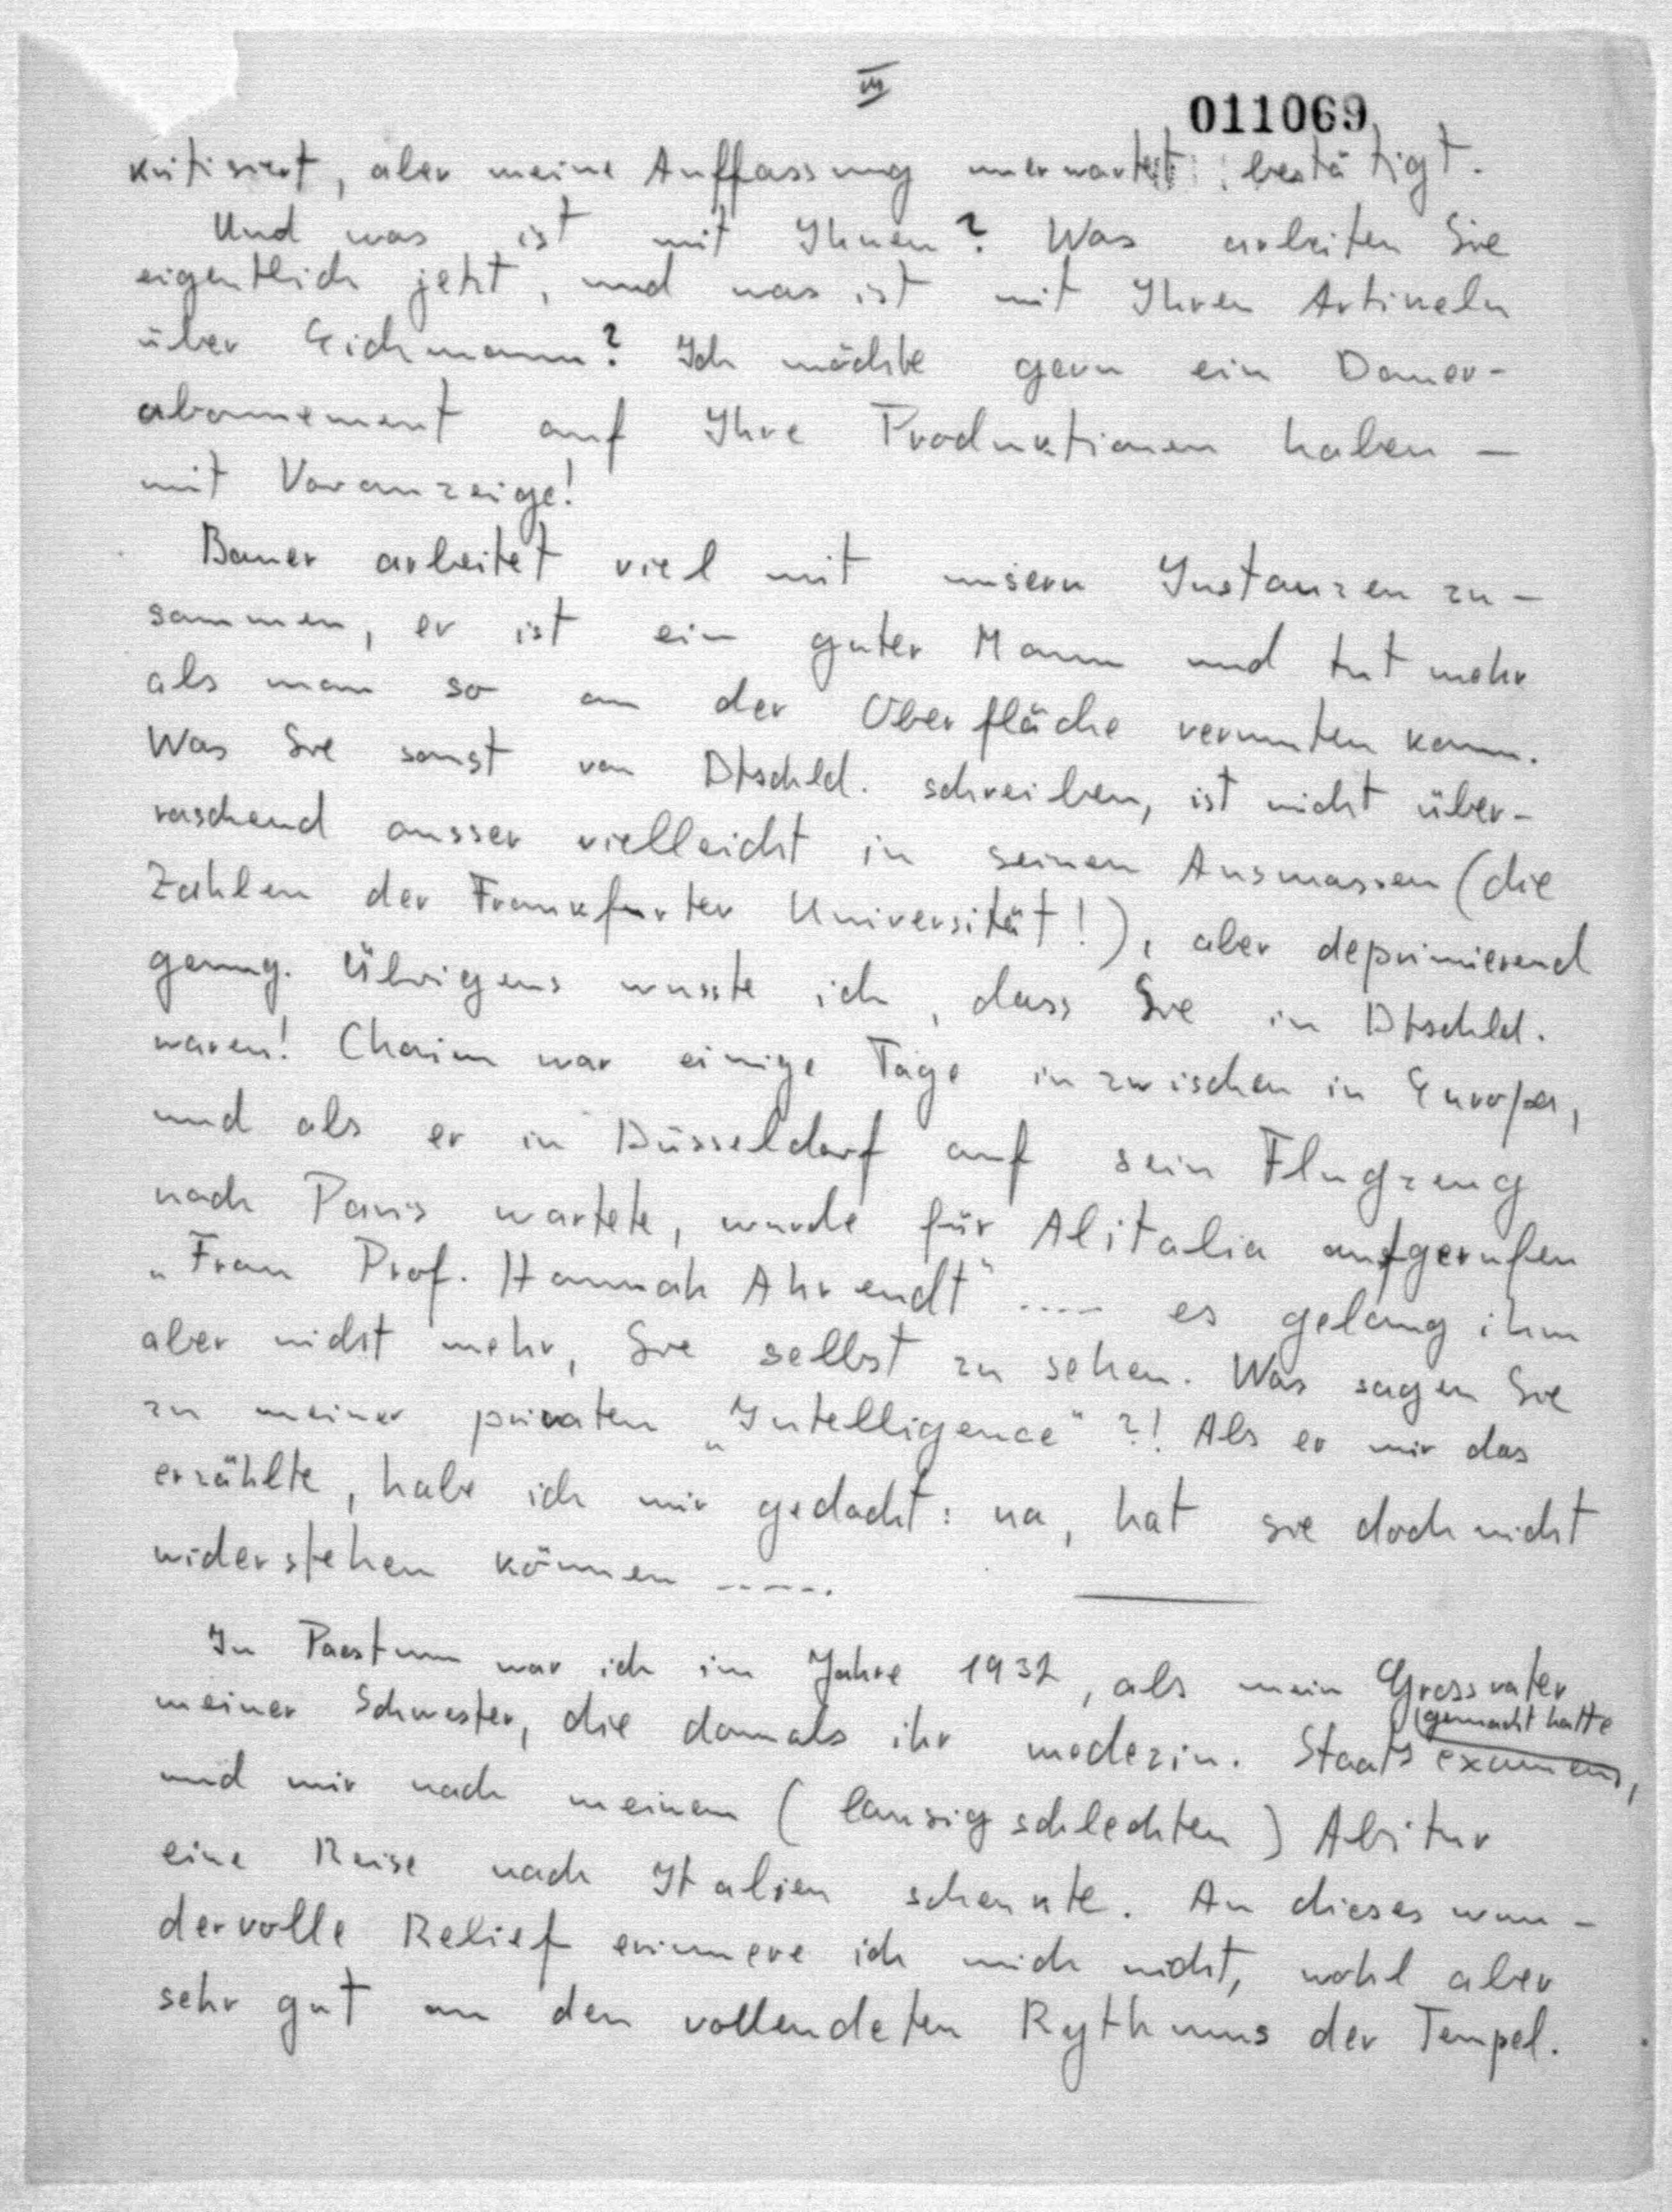 III
011069
kritisiert, aber meine Auffassung unerwartet bestätigt.
Und was ist mit Ihnen? Was arbeiten Sie
eigentlich jetzt, und was ist mit Ihren Artikeln
über Eichmann? Ich möchte gern ein Dauer-
abonnement auf Ihre Produktionen haben —
mit Voranzeige!
Bauer arbeitet viel mit unsern Instanzen zu-
sammen, er ist ein guter Mann und tut mehr
als man so an der Oberfläche vermuten kann.
Was Sie sonst von Dtschld. schreiben, ist nicht über-
raschend ausser vielleicht in seinen Ausmassen (die
Zahlen der Frankfurter Universität!), aber deprimierend
genug. Übrigens wusste ich, dass Sie in Dtschld.
waren! Chaim war einige Tage inzwischen in Europa,
und als er in Düsseldorf auf sein Flugzeug
nach Paris wartete, wurde für Alitalia aufgerufen
„Frau Prof. Hannah Ahrendt" ---- es gelang ihm
aber nicht mehr, Sie selbst zu sehen. Was sagen Sie
zu meiner privaten „Intelligence" ?! Als er mir das
erzählte, habe ich mir gedacht: na, hat sie doch nicht
widerstehen können -----.
In Paestum war ich im Jahre 1932, als mein Grossvater
meiner Schwester, die damals ihr medezin. Staatsexamen gemacht hatte,
und mir nach meinem (lausig schlechten) Abitur
eine Reise nach Italien schenkte. An dieses wun-
dervolle Relief erinnere ich mich nicht, wohl aber
sehr gut an den vollendeten Rythmus der Tempel.